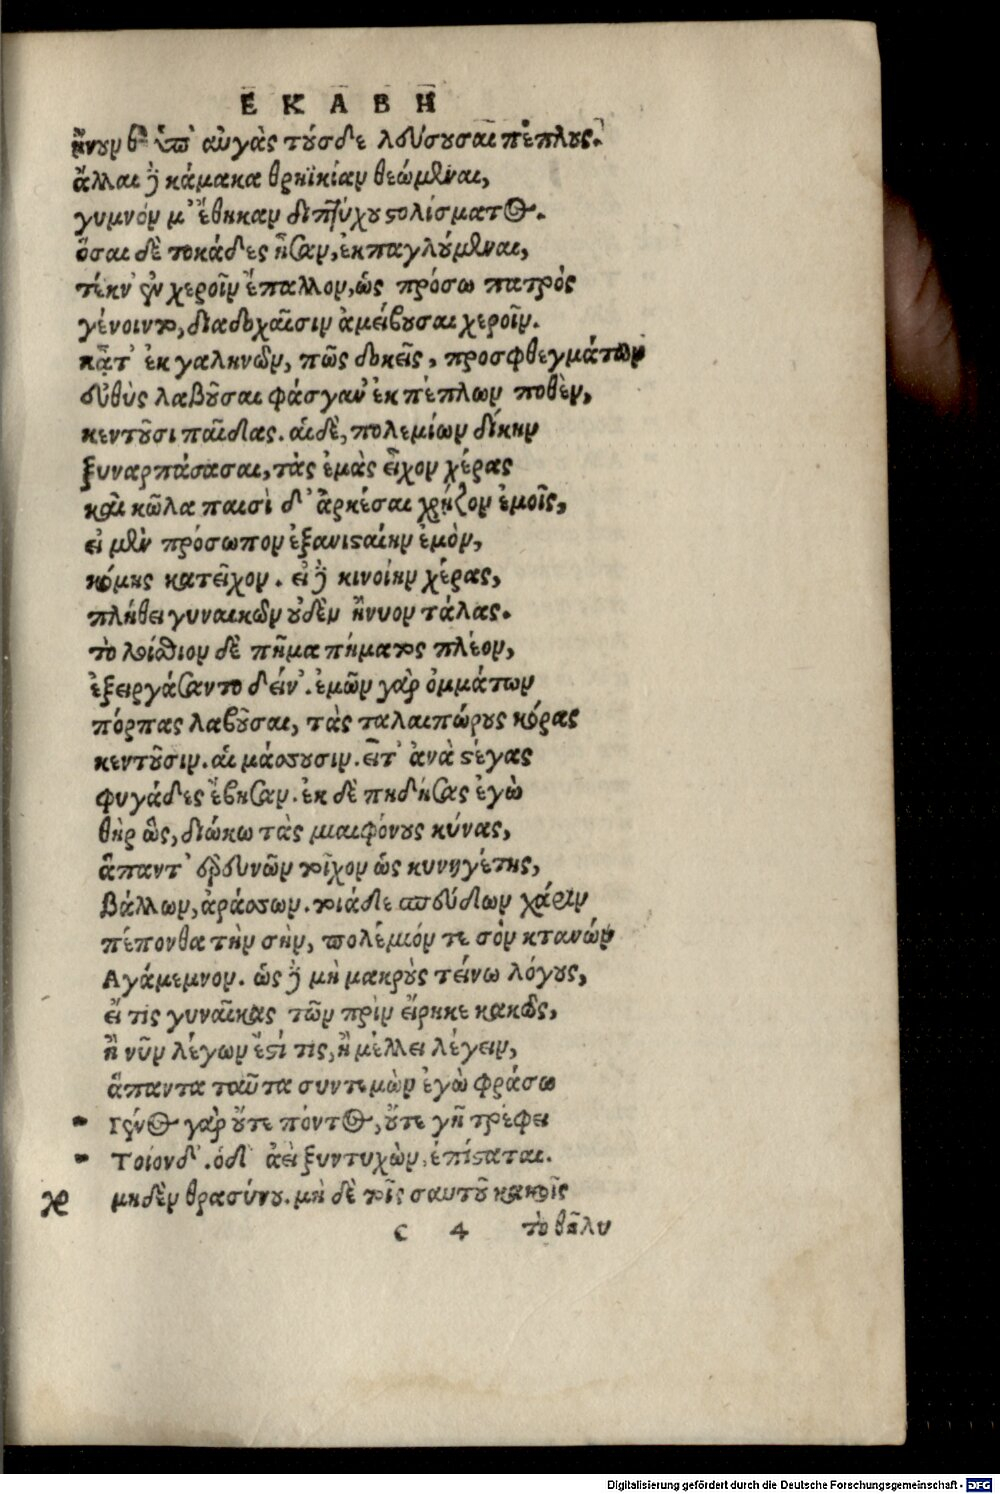 ΕΚΑΒΗ
ᾔνουν θ' ὑπ' αὐγὰς τούσδε λεύσουσαι πέπλους.
ἄλλαι δὲ κάμακα θρηϊκίαν θεώμεναι,
γυμνόν μ' ἔθηκαν διπτύχου στολίσματος.
ὅσαι δὲ τοκάδες ἦσαν, ἐκπαγλούμεναι,
τέκν' ἐν χεροῖν ἔπαλλον, ὡς πρόσω πατρὸς
γένοιντο, διαδοχαῖσιν ἀμείβουσαι χεροῖν.
κᾆτ' ἐκ γαληνῶν, πῶς δοκεῖς, προσφθεγμάτων
εὐθὺς λαβοῦσαι φάσγαν' ἐκ πέπλων ποθὲν,
κεντοῦσι παῖδας. αἱ δὲ, πολεμίων δίκην
ξυναρπάσασαι, τὰς ἐμὰς εἶχον χέρας
καὶ κῶλα παισὶ δ' ἀρκέσαι χρῄζον ἐμοῖς,
εἰ μὲν πρόσωπον ἐξανισταίην ἐμὸν,
κόμης κατεῖχον. εἰ δὲ κινοίην χέρας,
πλήθει γυναικῶν οὐδὲν ἤνυον τάλας.
τὸ λοίσθιον δὲ πῆμα πήματος πλέον,
ἐξειργάσαντο δείν'. ἐμῶν γὰρ ὀμμάτων
πόρπας λαβοῦσαι, τὰς ταλαιπώρους κόρας
κεντοῦσιν. αἱμάσσουσιν. εἶτ' ἀνὰ στέγας
φυγάδες ἔβησαν. ἐκ δὲ πηδήσας ἐγὼ
θὴρ ὣς, διώκω τὰς μιαιφόνους κύνας,
ἅπαντ' ἐρευνῶν τοῖχον ὡς κυνηγέτης,
βάλλων, ἀράσσων. τοιάδε σπεύδων χάριν
πέπονθα τὴν σὴν, πολέμιόν τε σὸν κτανών
Αγάμεμνον. ὡς δὲ μὴ μακροὺς τείνω λόγους,
εἴ τις γυναῖκας τῶν πρὶν εἴρηκε κακῶς,
ἢ νῦν λέγων ἐστί τις, ἢ μέλλει λέγειν,
ἅπαντα ταῦτα συντεμὼν ἐγὼ φράσω
Γένος γὰρ οὔτε πόντος, οὔτε γῆ τρέφει
Τοίονδ'. ὁδ' ἀεὶ ξυντυχὼν, ἐπίσταται.
χο μηδὲν θρασύνου. μὴ δὲ τοῖς σαυτοῦ κακοῖς
c 4 τὸ θῆλυ
Digitalisierung gefördert durch die Deutsche Forschungsgemeinschaft - DFG